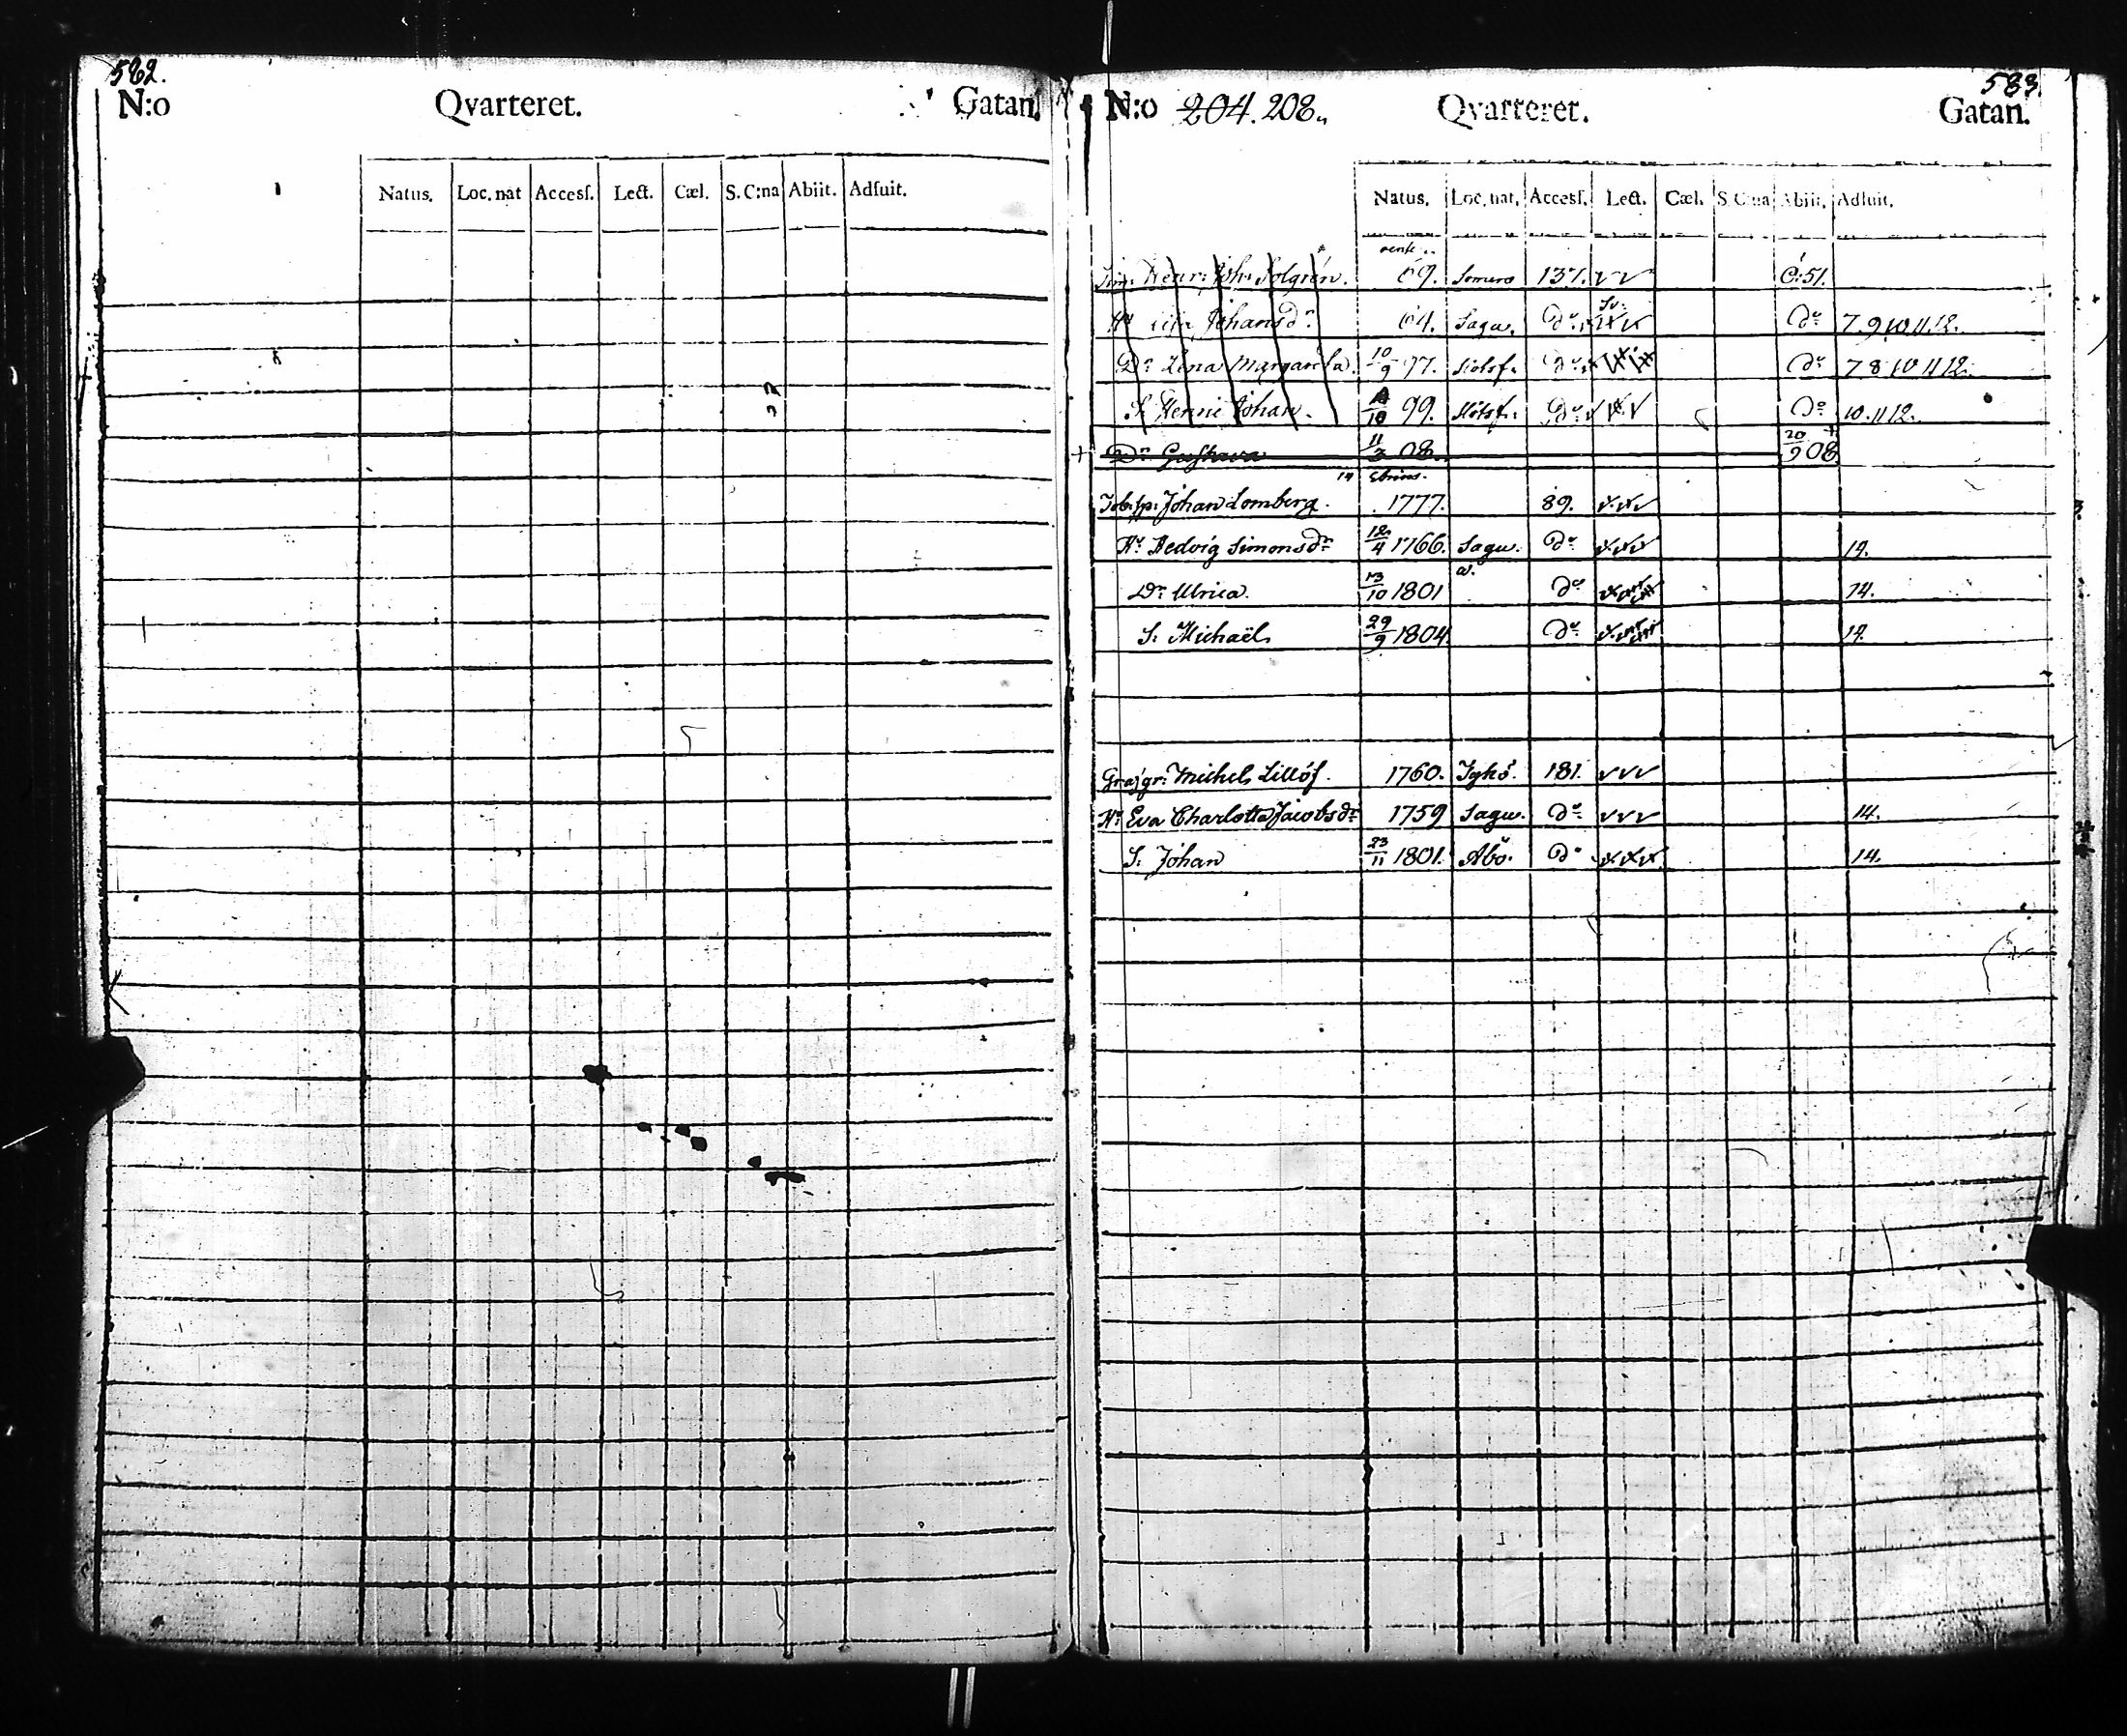 582.
N:o Qvarteret. Gatan.
Natus. Loc. nat Accesſ. Lect. Cæl. S. C:na Abiit. Adſuit.
583.
N:o 204. 208. Qvarteret. Gatan.
Natus. Loc. nat. Accesſ. Lect. Cæl. S. C:na Abiit. Adſuit.
Henr: Joh: Solgrén. 69. Somero 137. C:51.
Hu Johansdr. 64. Sagu. Do 7. 9. 10. 11. 12.
Dr Lena Margareta. 10/9 97. Do Do 7 8 10 11 12.
S. Henric Johan. 10 99. Do Do 10. 11. 12.
Dr Gustava 11/3 08. 20/9 08. +
Johan Lomberg. 1777. 89.
Hu Hedvig Simonsdr 12/4 1766. Sagu. Do 14.
Dr Ulrica. 13/10 1801 Do 14.
S. Michaël 29/9 1804. Do 14.
Michel Lillöf. 1760. 181.
Hu Eva Charlotta Jacobsdr 1759 Sagu. Do 14.
S. Johan 23/11 1801. Åbo. Do 14.